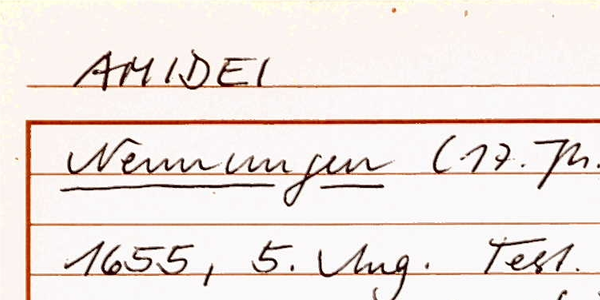 AMIDEI
Nennungen (17. Jh.
1655, 5. Aug. Test.